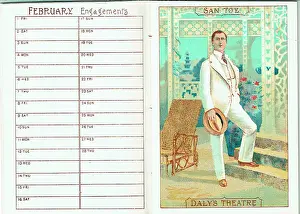 FEBRUARY Engagements
1 FRI
2 SAT
3 SUN
4 MON
5 TUE
6 WED
7 THU
8 FRI
9 SAT
10 SUN
11 MON
12 TUE
13 WED
14 THU
15 FRI
16 SAT
17 SUN
18 MON
19 TUE
20 WED
21 THU
22 FRI
23 SAT
24 SUN
25 MON
26 TUE
27 WED
28 THU
"SAN TOY"
DALY'S THEATRE